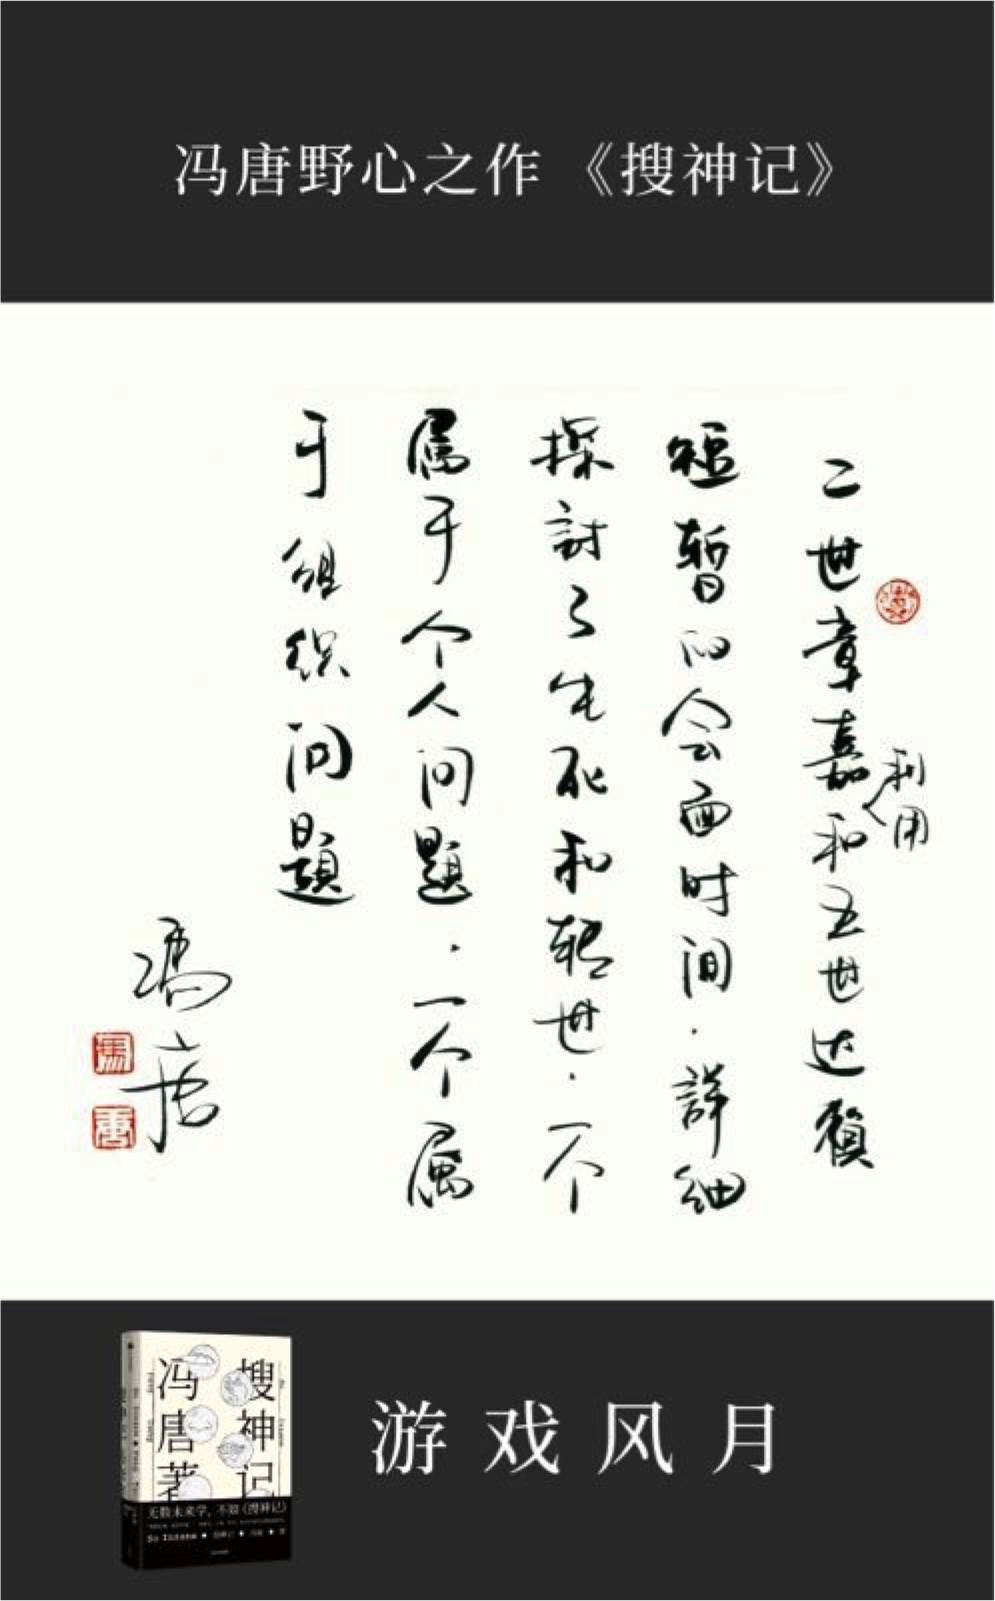 冯唐野心之作《搜神记》
二世章嘉利用和五世达赖
短暂的会面时间.詳细
探討了生死和轉世.一个
属于个人问题.一个属
于组织问题
冯唐
搜神记
冯唐著
无数未来学，不如《搜神记》
游戏风月